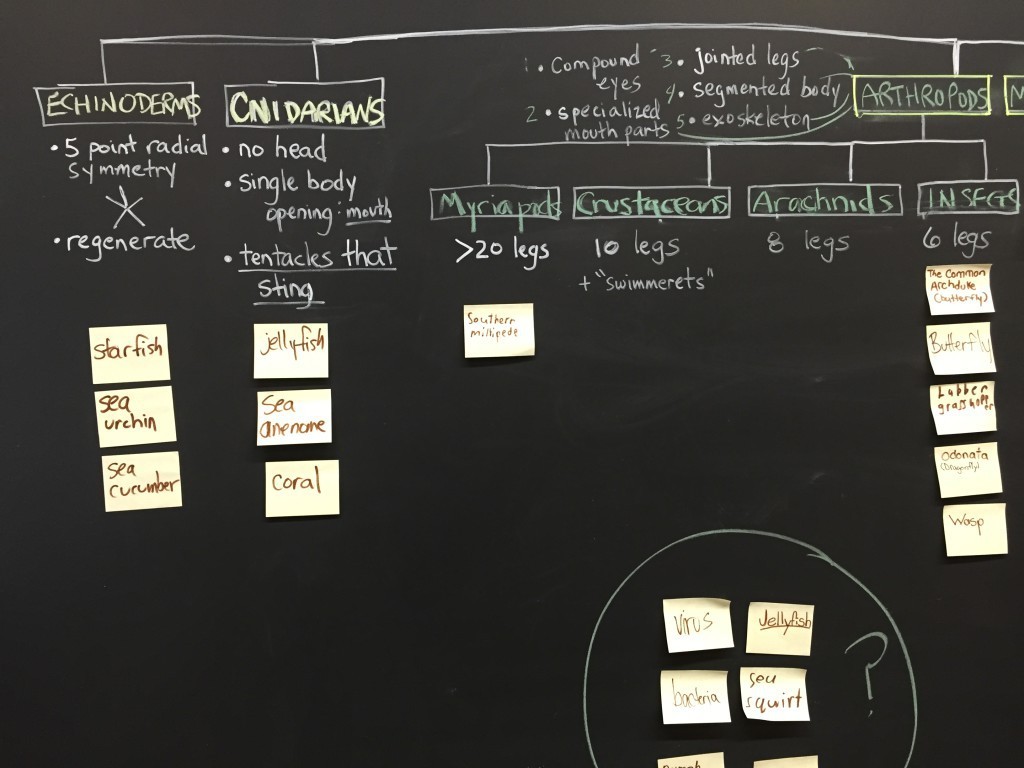 ECHINODERMS
• 5 point radial
symmetry
• regenerate
starfish
sea
urchin
sea
cucumber
CNIDARIANS
• no head
• single body
opening: mouth
• tentacles that
sting
jellyfish
Sea
anemone
coral
1. • Compound
eyes
2 • specialized
mouth parts
3. • jointed legs
4. • segmented body
5. • exoskeleton
ARTHROPODS
M
Myriapods
>20 legs
Southern
millipede
Crustaceans
10 legs
+ "swimmerets"
Arachnids
8 legs
INSECTS
6 legs
The Common
Archduke
(butterfly)
Butterfly
Lubber
grasshopper
Odonata
(Dragonfly)
Wasp
virus
Jellyfish
bacteria
sea
squirt
?